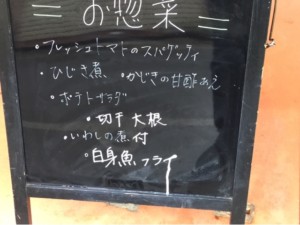 お惣菜
・フレッシュトマトのスパゲッティ
・ひじき煮 ・かじきの甘酢あえ
・ポテトサラダ
・切干大根
・いわしの煮付
・白身魚フライ